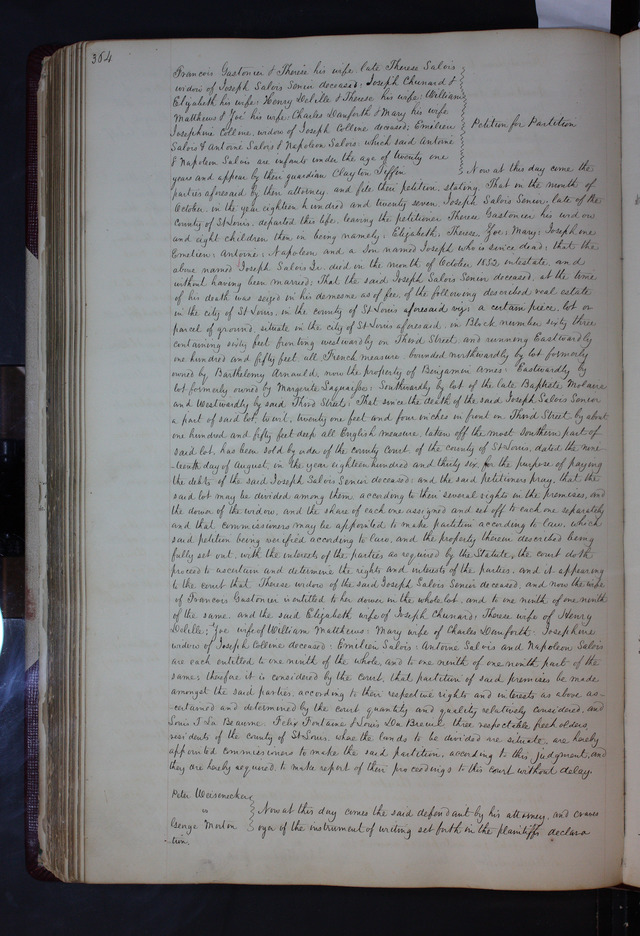 364
Francois Gastonier & Therese his wife, late Therese Salois
widow of Joseph Salois Senior deceased; Joseph Chunard &
Elizabeth his wife; Henry Delille & Therese his wife; William
Matthews & Zoe his wife; Charles Danforth & Mary his wife
Josephine Collene, widow of Joseph Collene deceased; Emilien
Salois & Antoine Salois & Napoleon Salois: which said Antoine
& Napoleon Salois are infants under the age of twenty one
years and appear by their guardian Clayton Tiffin.
Petition for Partition
Now at this day come the
parties aforesaid by their attorney and file their petition, stating, That in the month of
October, in the year eighteen hundred and twenty seven, Joseph Salois Senior, late of the
County of St Louis, departed this life, leaving the petitioner Therese Gastonier his widow
and eight children then in being namely; Elizabeth, Therese, Zoe; Mary; Josephine
Emilien; Antoine; Napoleon and a Son named Joseph who is since dead; that the
above named Joseph Salois Jr. died in the month of October 1832 intestate, and
without having been married; That the said Joseph Salois Senior deceased, at the time
of his death was seized in his demesne as of fee, of the following described real estate
in the city of St Louis, in the county of St Louis aforesaid viz; a certain piece, lot or
parcel of ground, situate in the city of St Louis aforesaid, in Block number sixty three
containing sixty feet fronting westwardly on Third Street, and running Eastwardly
one hundred and fifty feet all French measure, bounded northwardly by lot formerly
owned by Barthelemy Arnauld, now the property of Benjamin Ames; Eastwardly by
lot formerly owned by Margerite; Southwardly by lot of the late Baptiste Molaire
and Westwardly by said Third Street; That since the death of the said Joseph Salois Senior
a part of said lot, to wit, twenty one feet and four inches in front on Third Street by about
one hundred and fifty feet deep all English measure, taken off the most southern part of
said lot, has been sold by order of the county court of the county of St Louis, dated the nine-
teenth day of August, in the year eighteen hundred and thirty six, for the purpose of paying
the debts of the said Joseph Salois Senior deceased: and the said petitioners pray, that the
said lot may be divided among them according to their several rights in the premises, and
the dower of the widow, and the share of each one assigned and set off to each one separately
and that commissioners may be appointed to make partition according to law, which
said petition being verified according to law, and the property therein described being
fully set out, with the interests of the parties as required by the Statute, the court doth
proceed to ascertain and determine the rights and interests of the parties, and it appearing
to the court that Therese widow of the said Joseph Salois Senior deceased, and now the wife
of Francois Gastonier is entitled to her dower in the whole lot, and to one ninth of one ninth
of the same, and the said Elizabeth wife of Joseph Chunard; Therese wife of Henry
Delille; Zoe wife of William Matthews; Mary wife of Charles Danforth; Josephine
widow of Joseph Collene deceased; Emilien Salois; Antoine Salois and Napoleon Salois
are each entitled to one ninth of the whole, and to one ninth of one ninth part of the
same; therefore it is considered by the court, that partition of said premises be made
amongst the said parties, according to their respective rights and interests as above as-
-certained and determined by the court, quantity and quality relatively considered, and
Louis T La Beaume, Felix Fontaine & Louis Du Breuil three respectable freeholders,
residents of the county of St Louis, where the lands to be divided are situate, are hereby
appointed commissioners to make the said partition, according to this judgment, and
they are hereby required to make report of their proceedings to this court without delay.
Peter
vs
George Morton
Now at this day comes the said defendant by his attorney, and craves
oyer of the instrument of writing set forth in the plaintiffs declara
tion.